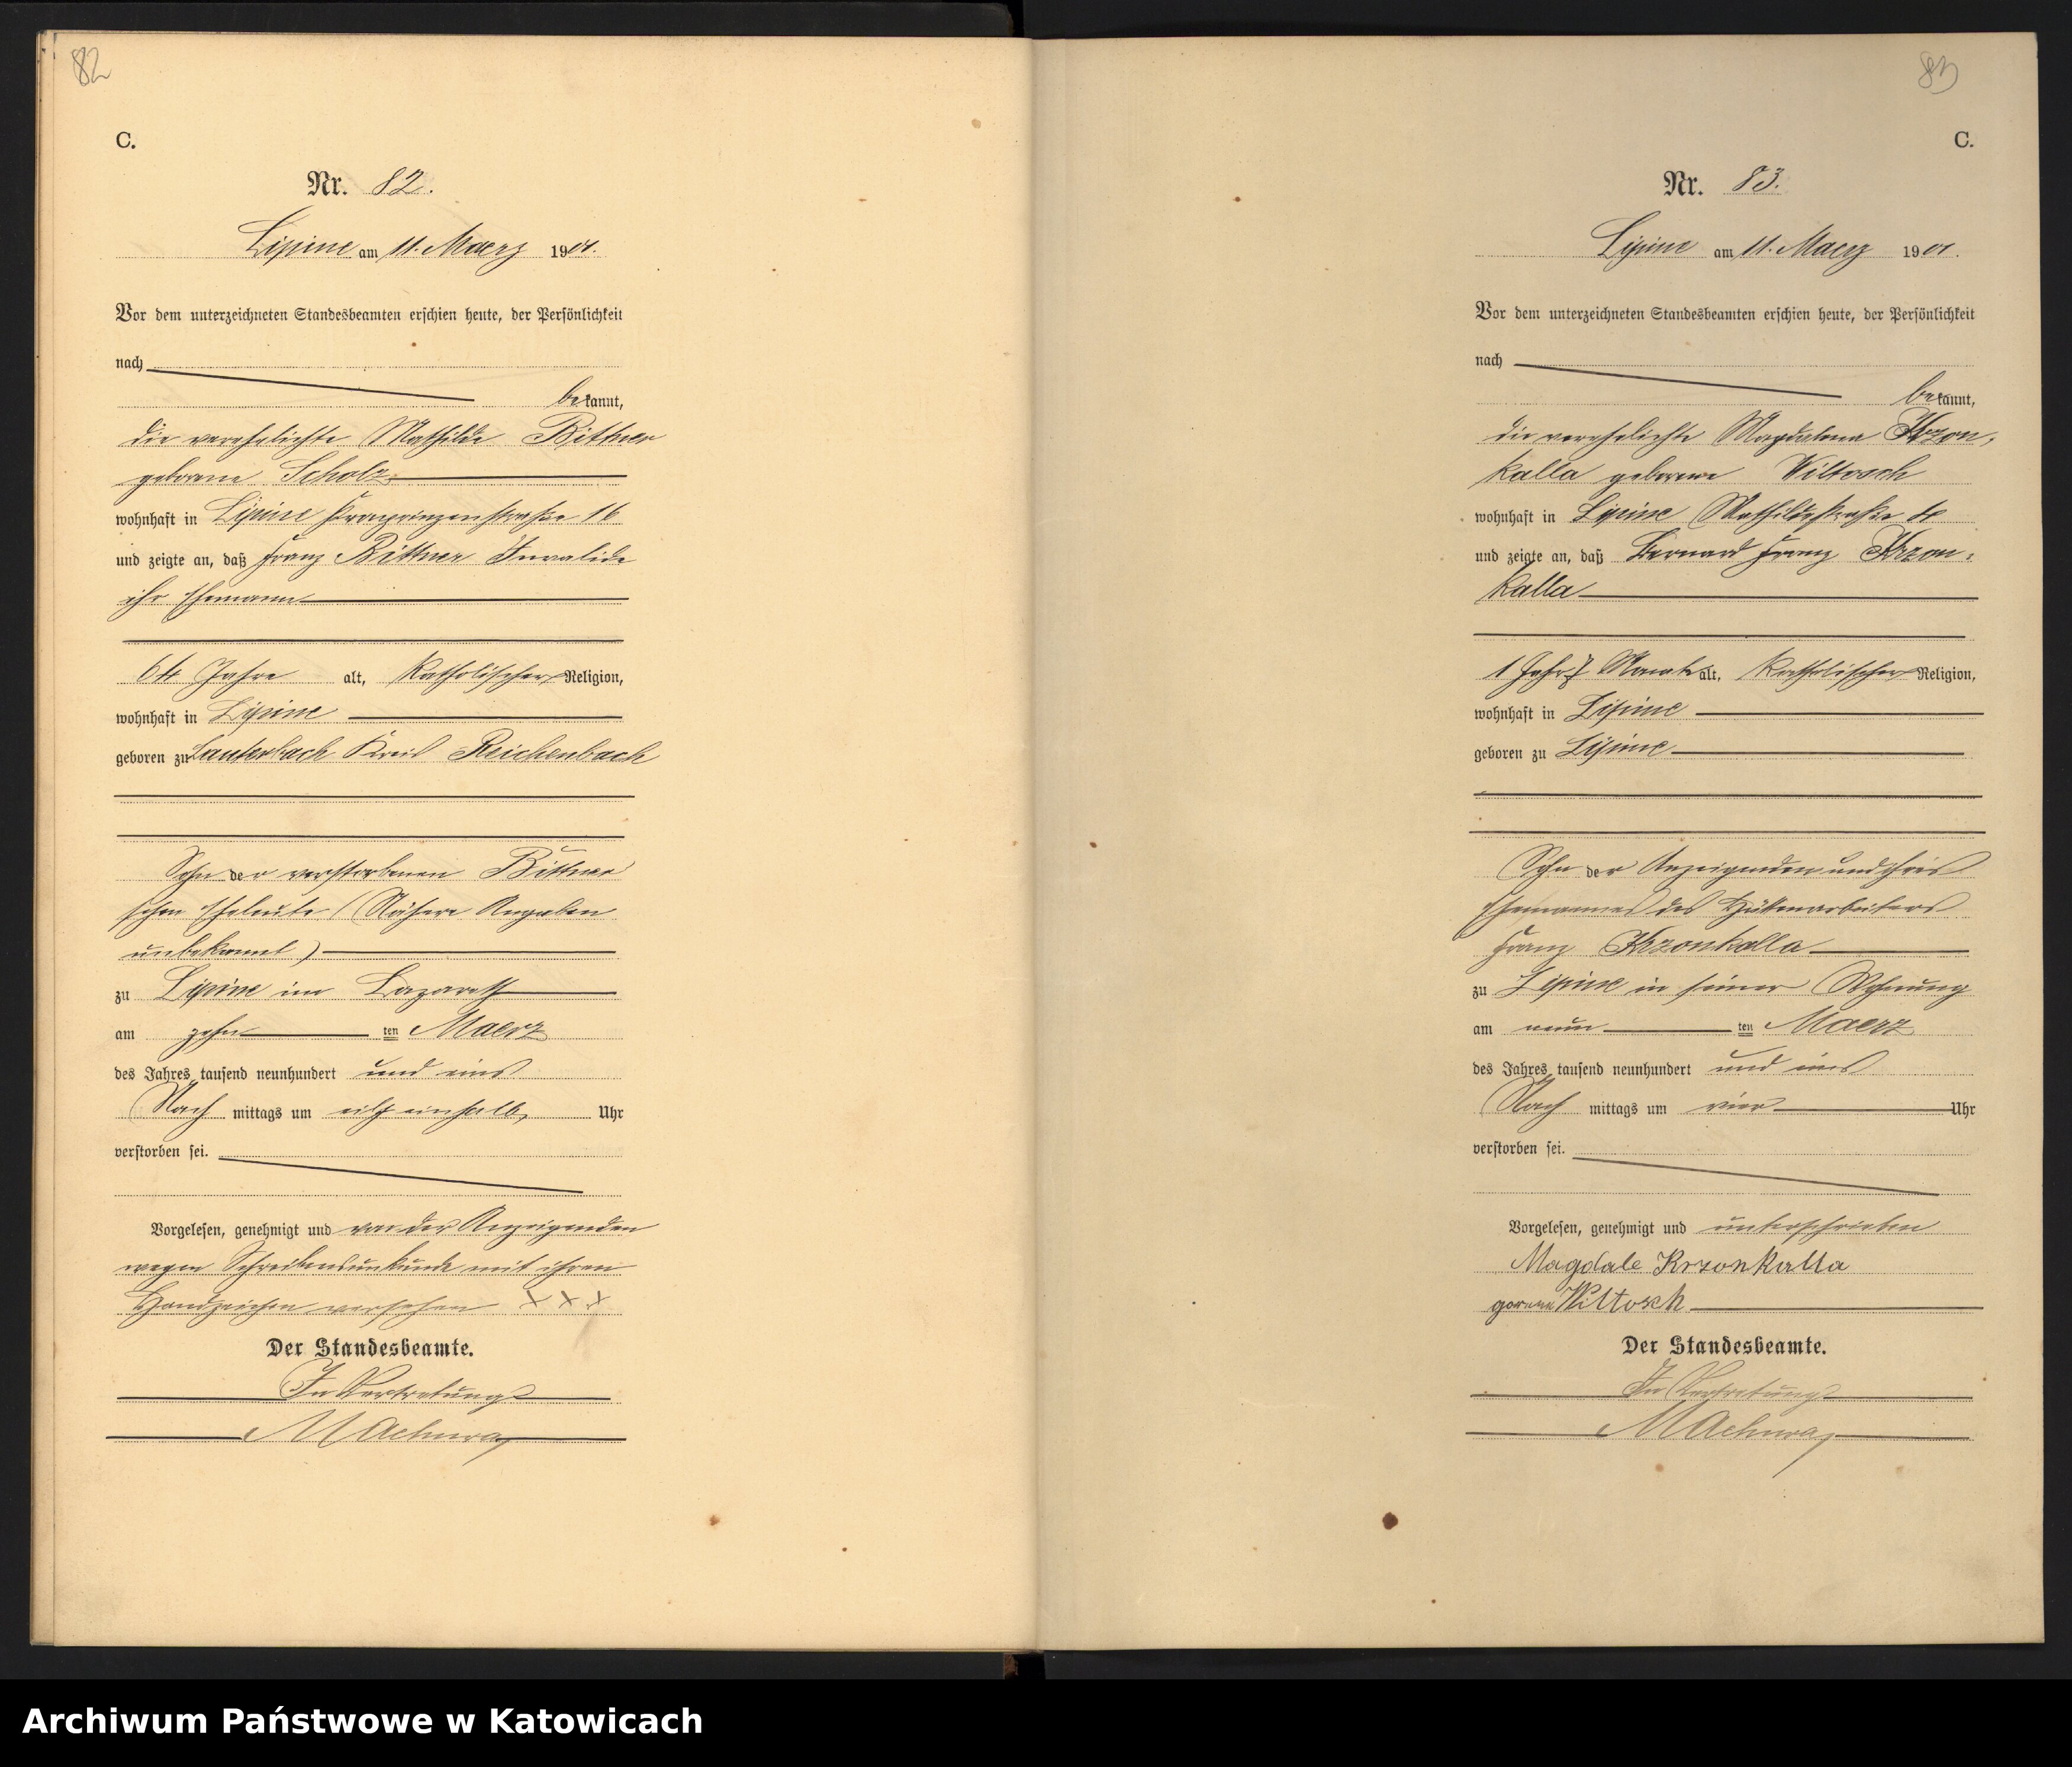 82
C.
Nr. 82.
Lipine am 11. Maerz 1901.
Vor dem unterzeichneten Standesbeamten erschien heute, der Persönlichkeit
nach
bekannt,
die verehelichte Mathilde Bittner
geborene Scholz
wohnhaft in Lipine Kronprinzenstraße 16
und zeigte an, daß Franz Bittner Invalide
ihr Ehemann
64 Jahre alt, katholischer Religion,
wohnhaft in Lipine
geboren zu Lauterbach Kreis Reichenbach
Sohn der verstorbenen Bittner
schen Eheleute (Nähere Angaben
unbekannt)
zu Lipine im Lazareth
am zehn ten Maerz
des Jahres tausend neunhundert und eins
Nach mittags um eilf einhalb Uhr
verstorben sei.
Vorgelesen, genehmigt und von der Anzeigenden
wegen Schreibensunkunde mit ihrem
Handzeichen versehen XXX
Der Standesbeamte.
In Vertretung
83
C.
Nr. 83.
Lipine am 11. Maerz 1901.
Vor dem unterzeichneten Standesbeamten erschien heute, der Persönlichkeit
nach
bekannt,
die verehelichte Magdalena Krzon-
kalla geborene Wiltosch
wohnhaft in Lipine Mathildestraße 4
und zeigte an, daß Bernard Franz Krzon-
kalla
1 Jahr 7 Monate alt, katholischer Religion,
wohnhaft in Lipine
geboren zu Lipine
Sohn der Anzeigenden und ihres
Ehemannes des Hüttenarbeiters
Franz Krzonkalla
zu Lipine in seiner Wohnung
am neun ten Maerz
des Jahres tausend neunhundert und eins
Nach mittags um vier Uhr
verstorben sei.
Vorgelesen, genehmigt und unterschrieben
Magdale Krzonkalla
Wiltosch
Der Standesbeamte.
In Vertretung
Archiwum Państwowe w Katowicach